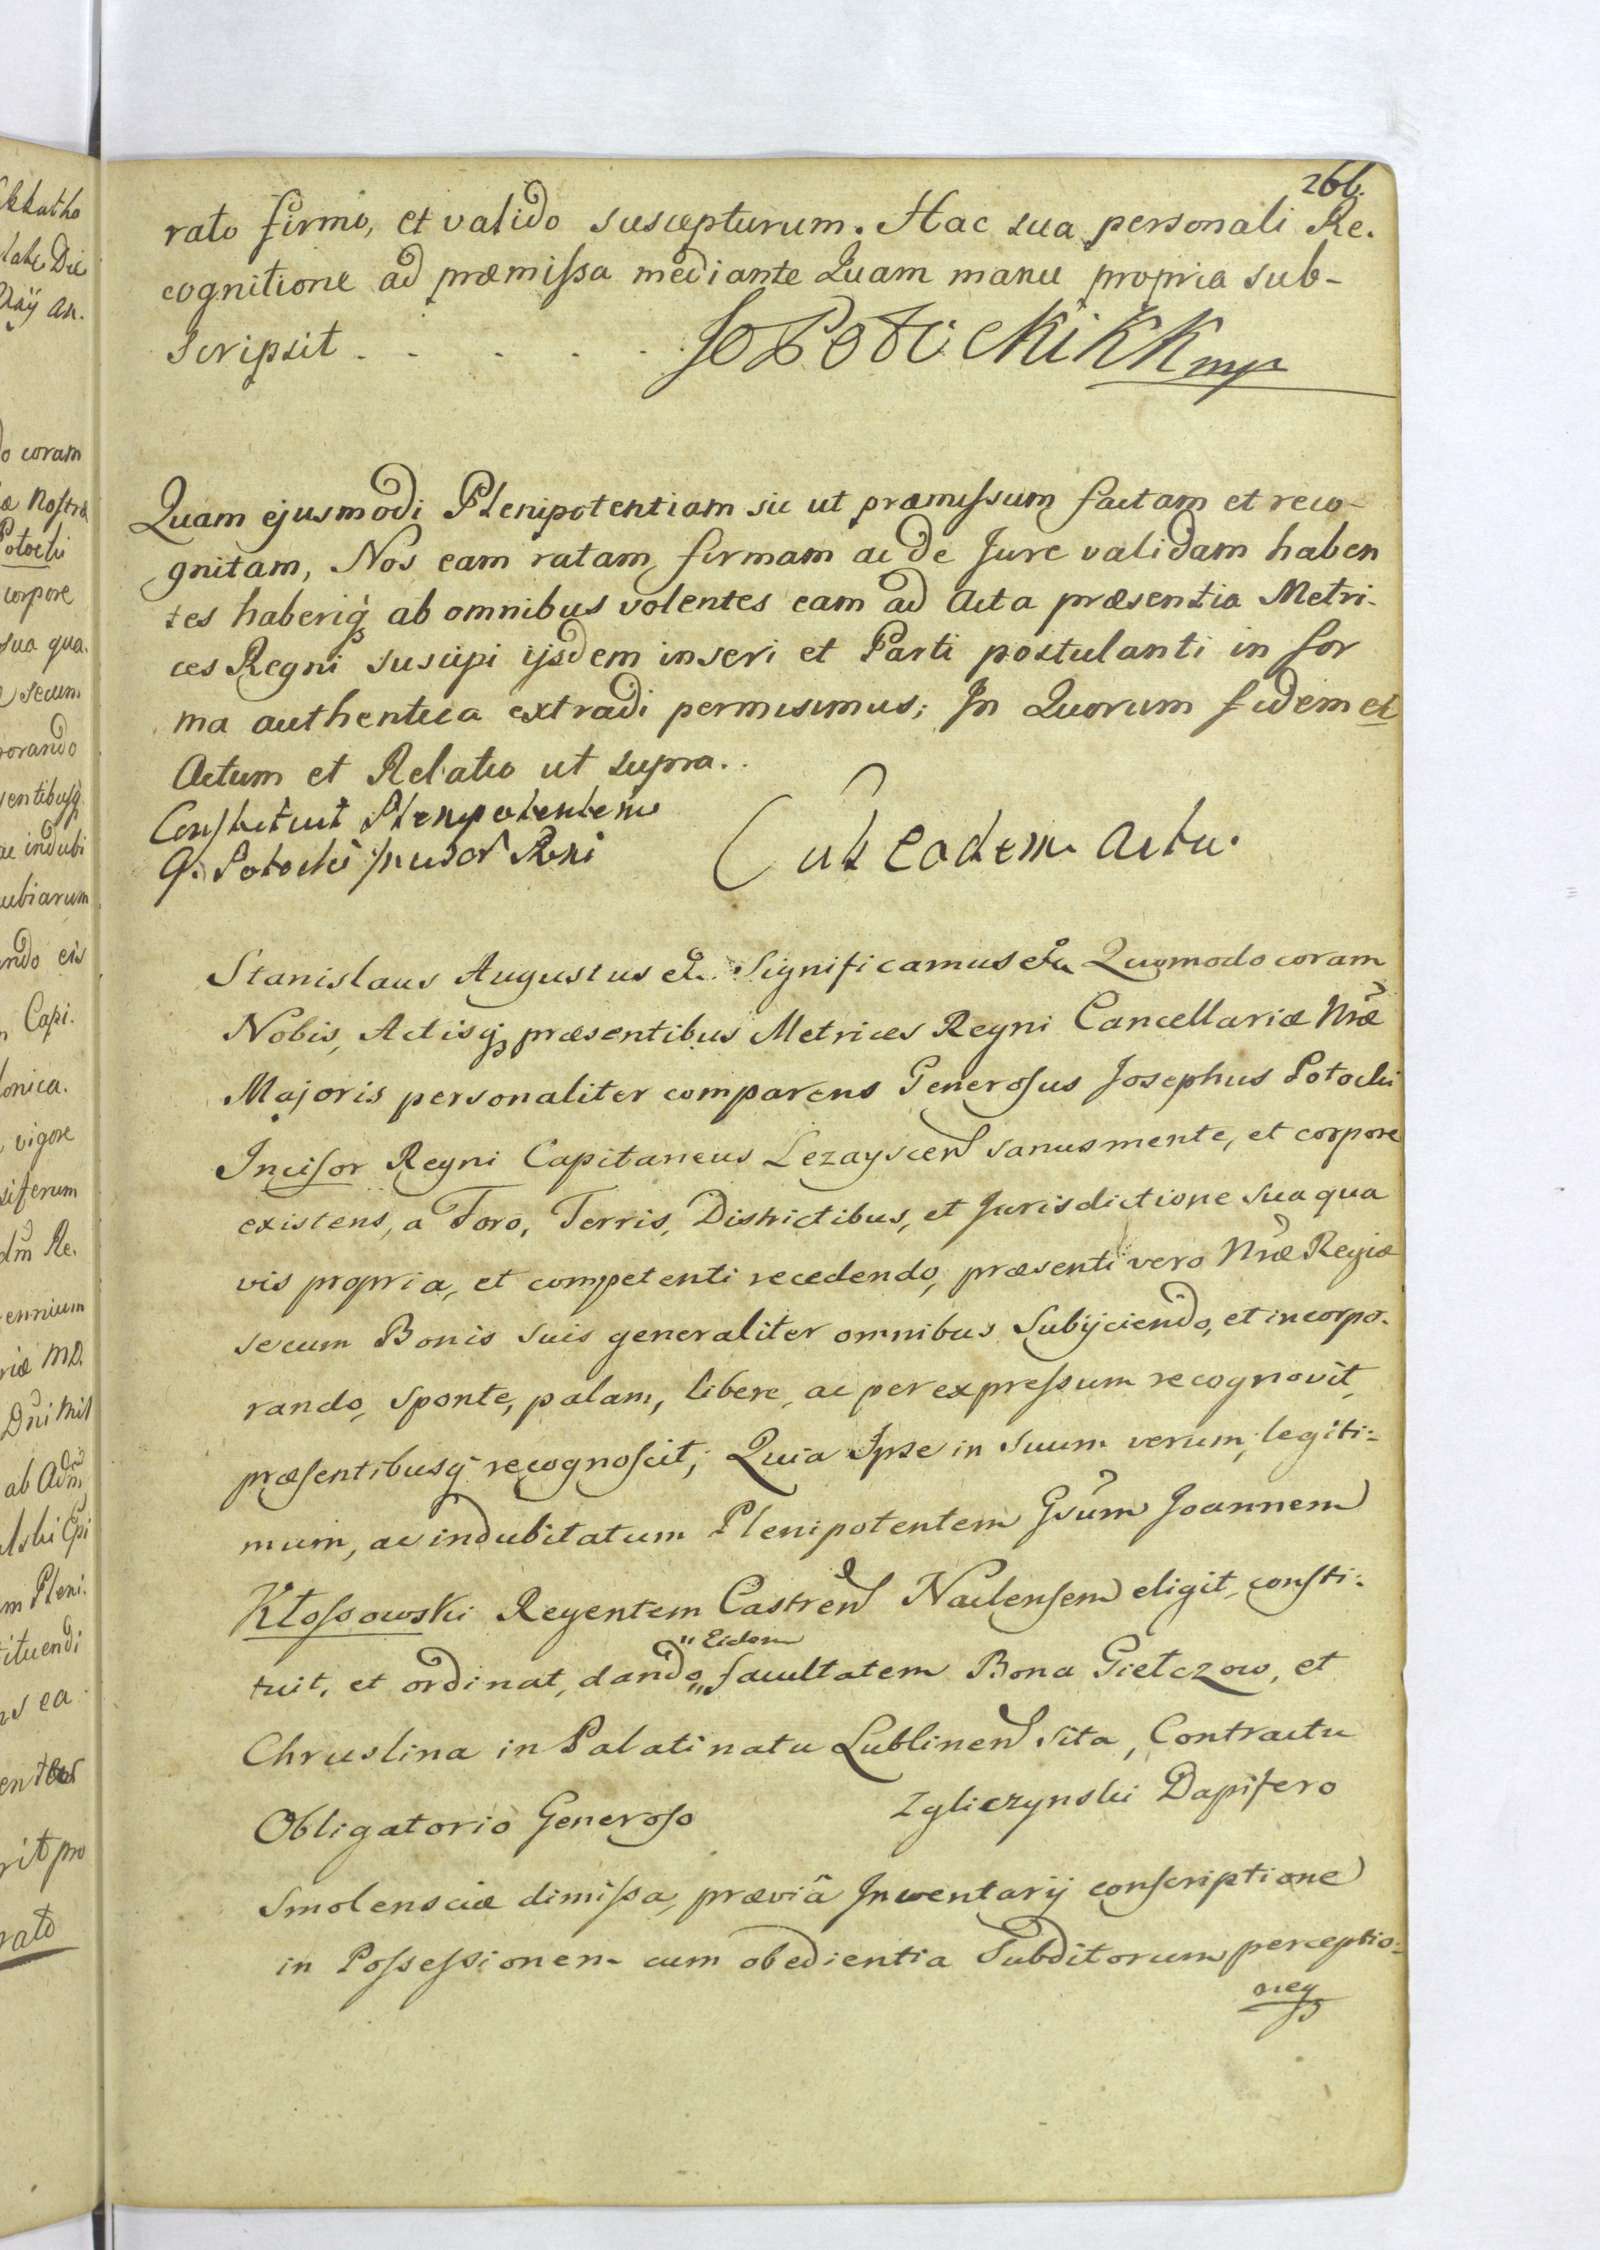 266.
rato firmo, et valido suscepturum. Hac sua personali Re.
cognitione ad præmissa mediante Quam manu propria sub-
scripsit . . . . . .
Potocki KK mp
Quam ejusmodi Plenipotentiam sic ut præmissum factam et reco-
gnitam, Nos eam ratam, firmam ac de Jure validam haben
tes haberiq; ab omnibus volentes eam ad Acta præsentia Metri-
ces Regni suscipi ijsdem inseri et Parti postulanti in for
ma authentica extradi permisimus; In Quorum fidem et
Actum et Relatio ut supra..
Constituit Plenipotentem
G. Potocki Incisor Rni
Sub Eodem Actu.
Stanislaus Augustus etc. Significamus etc. Quomodo coram
Nobis, Actisq; præsentibus Metrices Regni Cancellariæ Nræ
Majoris personaliter comparens Generosus Josephus Potocki
Incisor Regni Capitaneus Lezayscen sanus mente, et corpore
existens, a Foro, Terris, Districtibus, et Jurisdictione sua qua
vis propria, et competenti recedendo, præsenti vero Nræ Regiæ
secum Bonis suis generaliter omnibus Subijciendo, et incorpo.
rando, sponte, palam, libere, ac per expressum recognovit,
præsentibusq; recognoscit; Quia Ipse in suum verum, legiti:
mum, ac indubitatum Plenipotentem Gsum Joannem
Kłossowski Regentem Castren Naclensem eligit, consti:
tuit, et ordinat, dando „ Eidem „ facultatem Bona Giełczow, et
Chruslina in Palatinatu Lublinen Sita, Contractu
Obligatorio Generoso Zgliczynski Dapifero
Smolensciæ dimissa, præviâ Inventarij conscriptione
in Possessionem cum obedientia Subditorum perceptio:
neq;